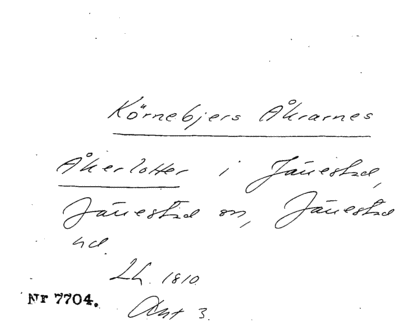 Körnebjers Åkrarnes
Åkerlotter i Jänestad,
Jänestad sn, Jänestad
hd.
Lh. 1810
Akt 3.
Nr 7704.